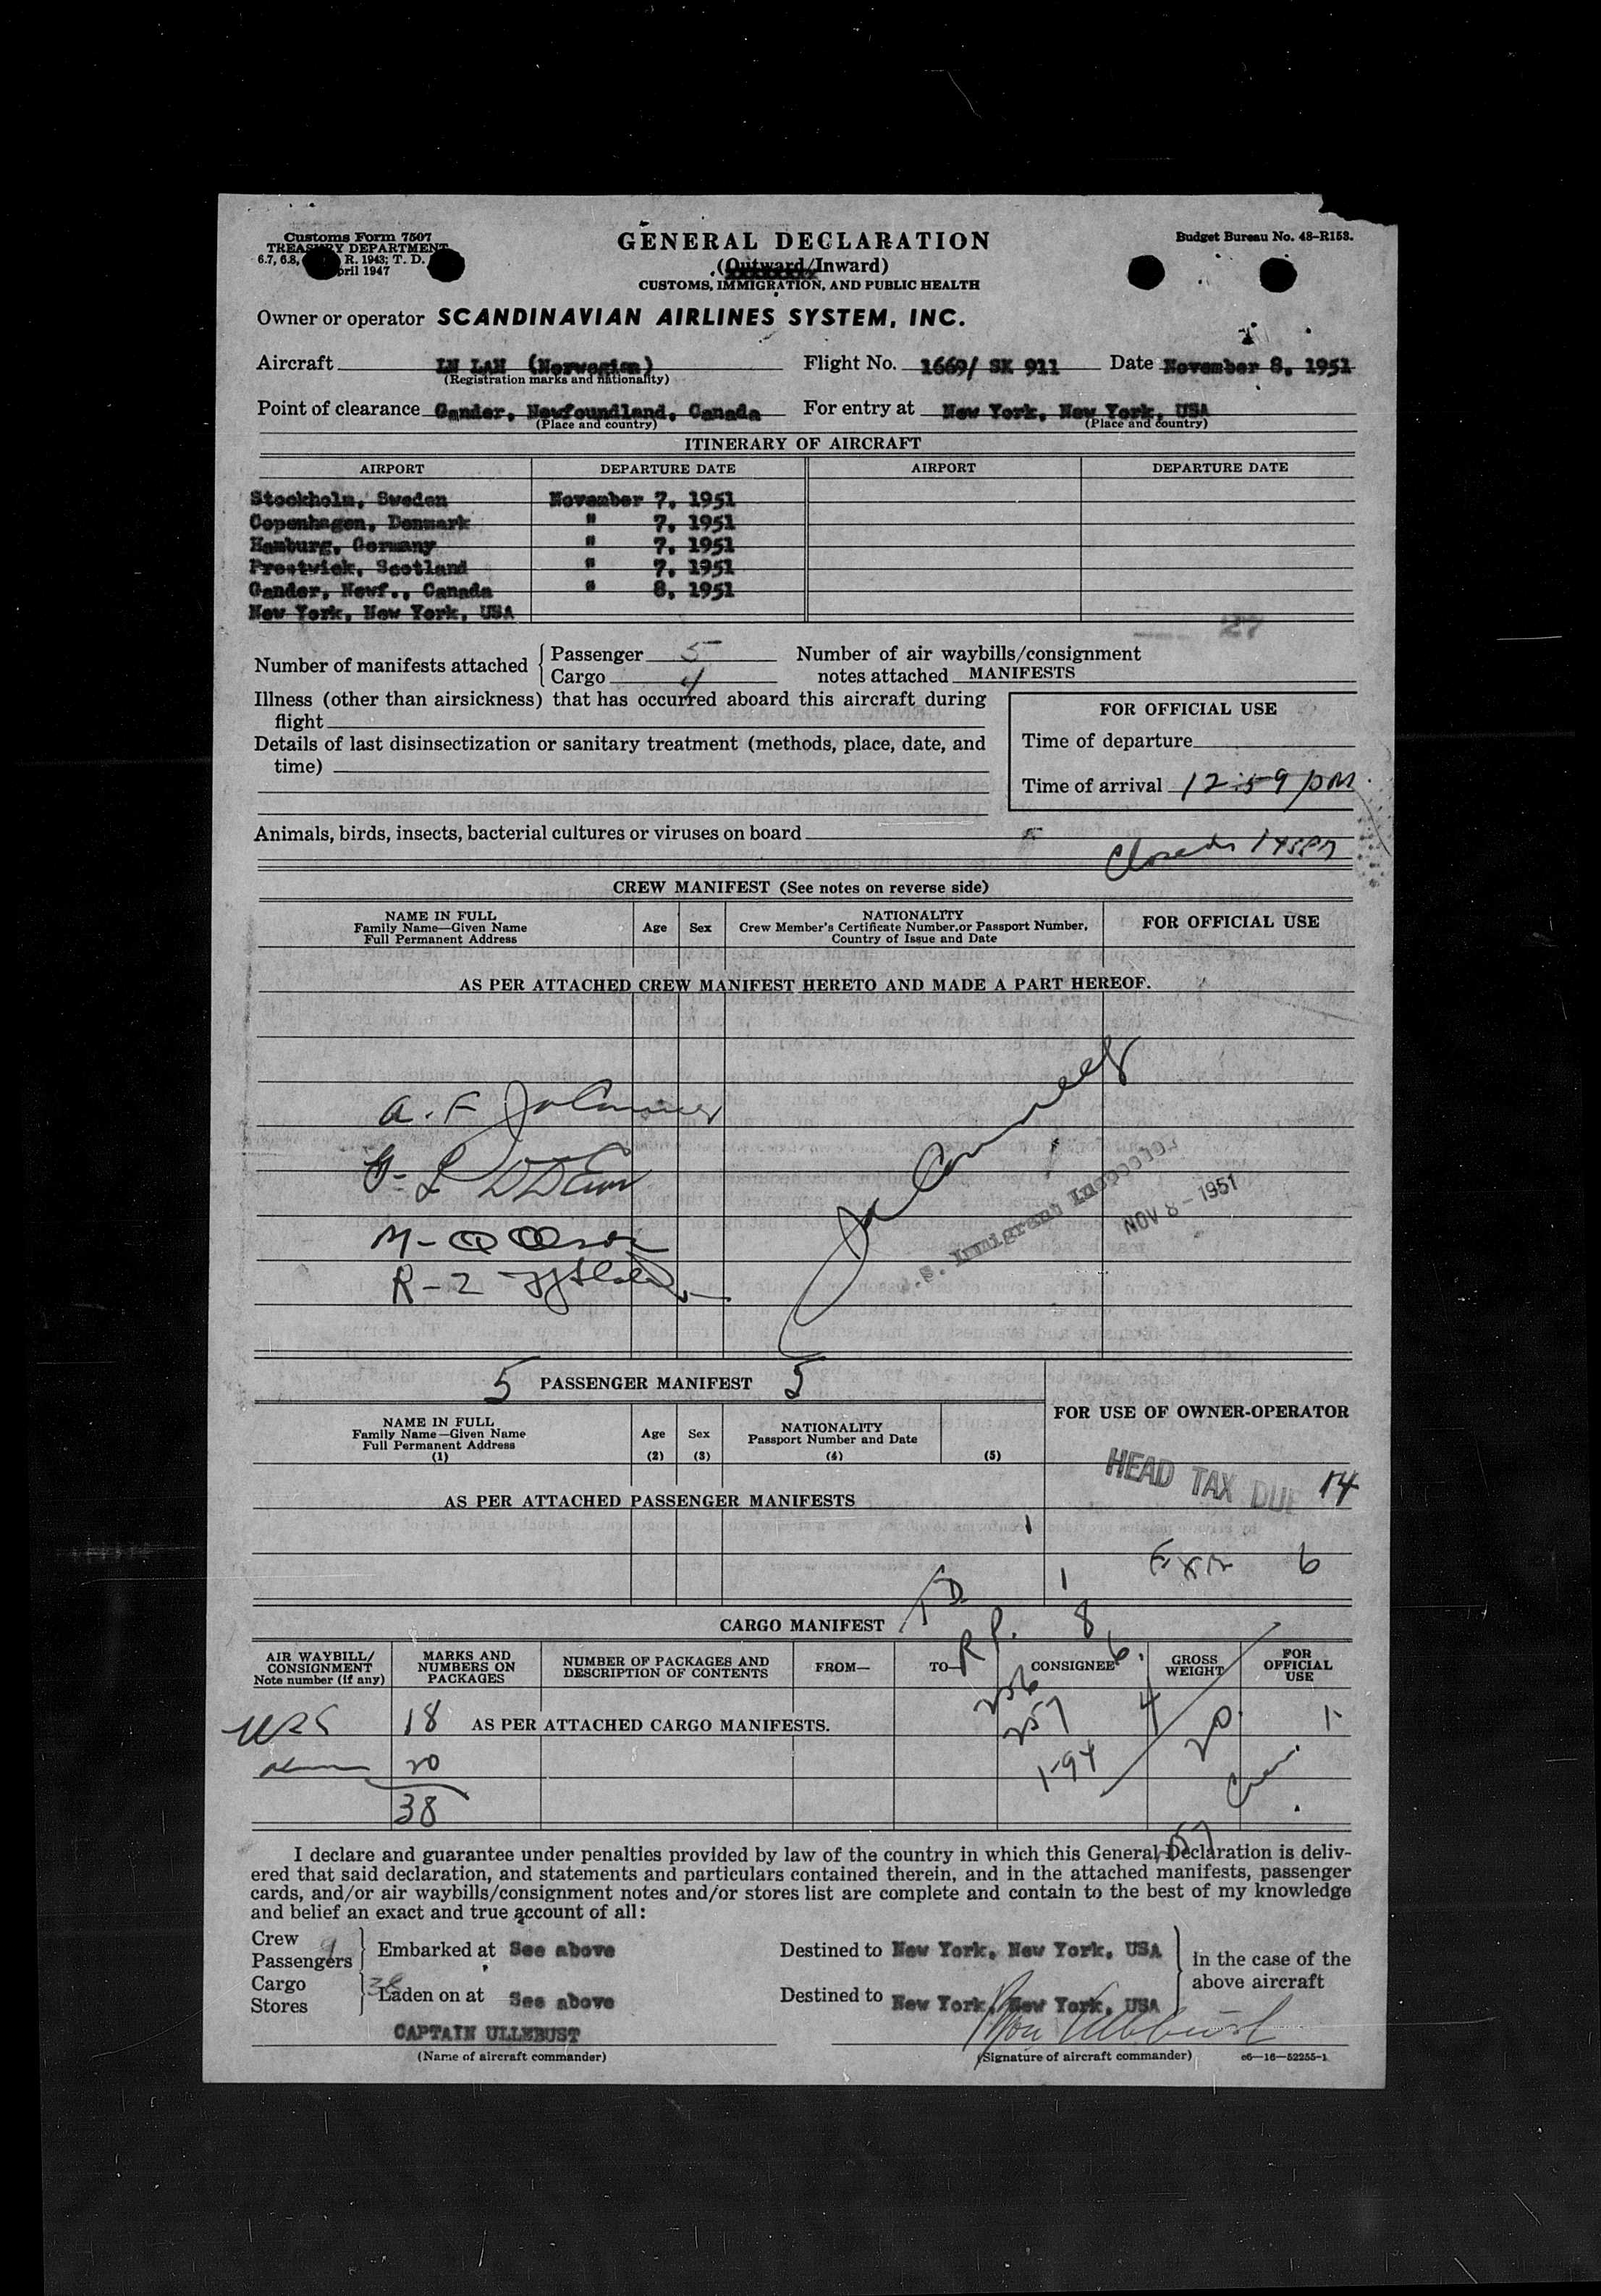 Customs Form 7507
TREASURY DEPARTMENT
6.7, 6.8, R. 1943; T. D.
April 1947
GENERAL DECLARATION
(Outward/Inward)
CUSTOMS, IMMIGRATION, AND PUBLIC HEALTH
Budget Bureau No. 48-R153.
Owner or operator SCANDINAVIAN AIRLINES SYSTEM, INC.
Aircraft LN LAH (Norwegian) Flight No. 1669/ SK 911 Date November 8, 1951
(Registration marks and nationality)
Point of clearance Gander, Newfoundland, Canada For entry at New York, New York, USA
(Place and country) (Place and country)
ITINERARY OF AIRCRAFT
AIRPORT DEPARTURE DATE AIRPORT DEPARTURE DATE
Stockholm, Sweden November 7, 1951
Copenhagen, Denmark " 7, 1951
Hamburg, Germany " 7, 1951
Prestwick, Scotland " 7, 1951
Gander, Newf., Canada " 8, 1951
New York, New York, USA
27
Number of manifests attached { Passenger 5 Number of air waybills/consignment
Cargo 4 notes attached MANIFESTS
Illness (other than airsickness) that has occurred aboard this aircraft during
flight
Details of last disinsectization or sanitary treatment (methods, place, date, and
time)
FOR OFFICIAL USE
Time of departure
Time of arrival 12:59 PM
Animals, birds, insects, bacterial cultures or viruses on board
CREW MANIFEST (See notes on reverse side)
NAME IN FULL
Family Name—Given Name
Full Permanent Address
Age
Sex
NATIONALITY
Crew Member's Certificate Number, or Passport Number,
Country of Issue and Date
FOR OFFICIAL USE
AS PER ATTACHED CREW MANIFEST HERETO AND MADE A PART HEREOF.
U.S. Immigrant Inspector
NOV 8 - 1951
5 PASSENGER MANIFEST 5
FOR USE OF OWNER-OPERATOR
NAME IN FULL
Family Name—Given Name
Full Permanent Address
(1)
Age
(2)
Sex
(3)
NATIONALITY
Passport Number and Date
(4)
(5)
HEAD TAX DUE 14
AS PER ATTACHED PASSENGER MANIFESTS
1
6
TD 1
CARGO MANIFEST
R P. 8
AIR WAYBILL/
CONSIGNMENT
Note number (if any)
MARKS AND
NUMBERS ON
PACKAGES
NUMBER OF PACKAGES AND
DESCRIPTION OF CONTENTS
FROM—
TO—
CONSIGNEE
GROSS
WEIGHT
FOR
OFFICIAL
USE
6
256
257 4
18 AS PER ATTACHED CARGO MANIFESTS.
20 1
20
1-94
38
57
I declare and guarantee under penalties provided by law of the country in which this General Declaration is deliv-
ered that said declaration, and statements and particulars contained therein, and in the attached manifests, passenger
cards, and/or air waybills/consignment notes and/or stores list are complete and contain to the best of my knowledge
and belief an exact and true account of all:
Crew 9
Passengers 38
Embarked at See above Destined to New York, New York, USA
Cargo
Stores
Laden on at See above Destined to New York, New York, USA
in the case of the
above aircraft
CAPTAIN ULLEBUST
(Name of aircraft commander) (Signature of aircraft commander) c6—16—52255-1